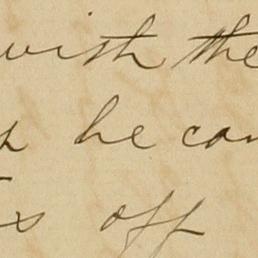 with the
he can
off